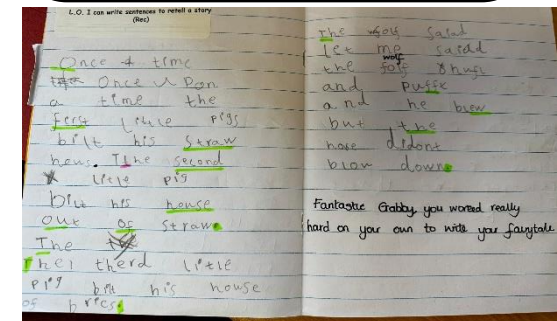 L.O. I can write sentences to retell a story
(Rec)
Once + time
Once u pon
a time the
ferst little pigs
bilt his straw
hous. The second
little pig
bilt his house
out of straw.
The
The therd little
pig bilt his house
of brics.
The wolf said
let me saidd
the wolf
and puffk
and he blew
but the
hose didont
blow down.
Fantastic Gabby, you worked really
hard on your own to write your fairytale.